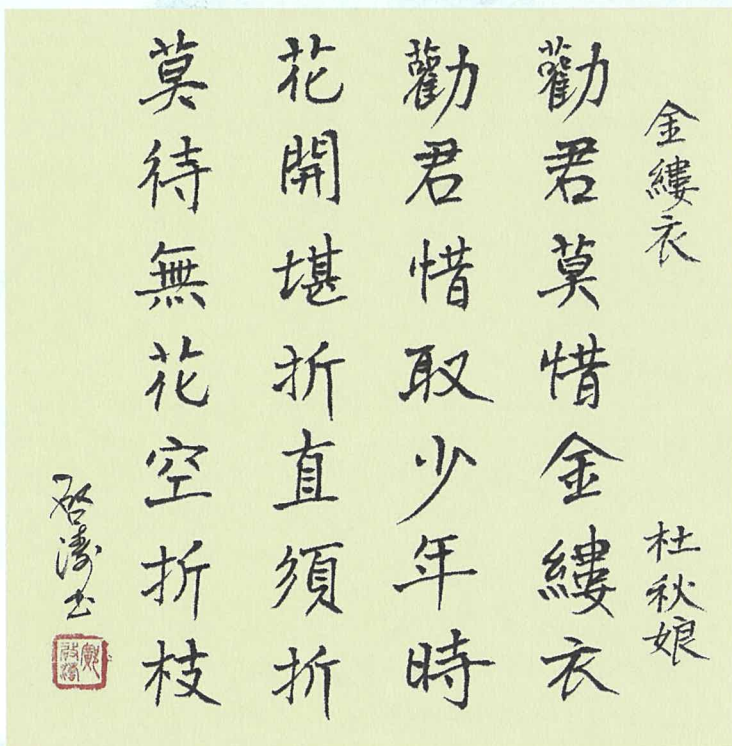 金縷衣 杜秋娘
勸君莫惜金縷衣
勸君惜取少年時
花開堪折直須折
莫待無花空折枝
啓濤书